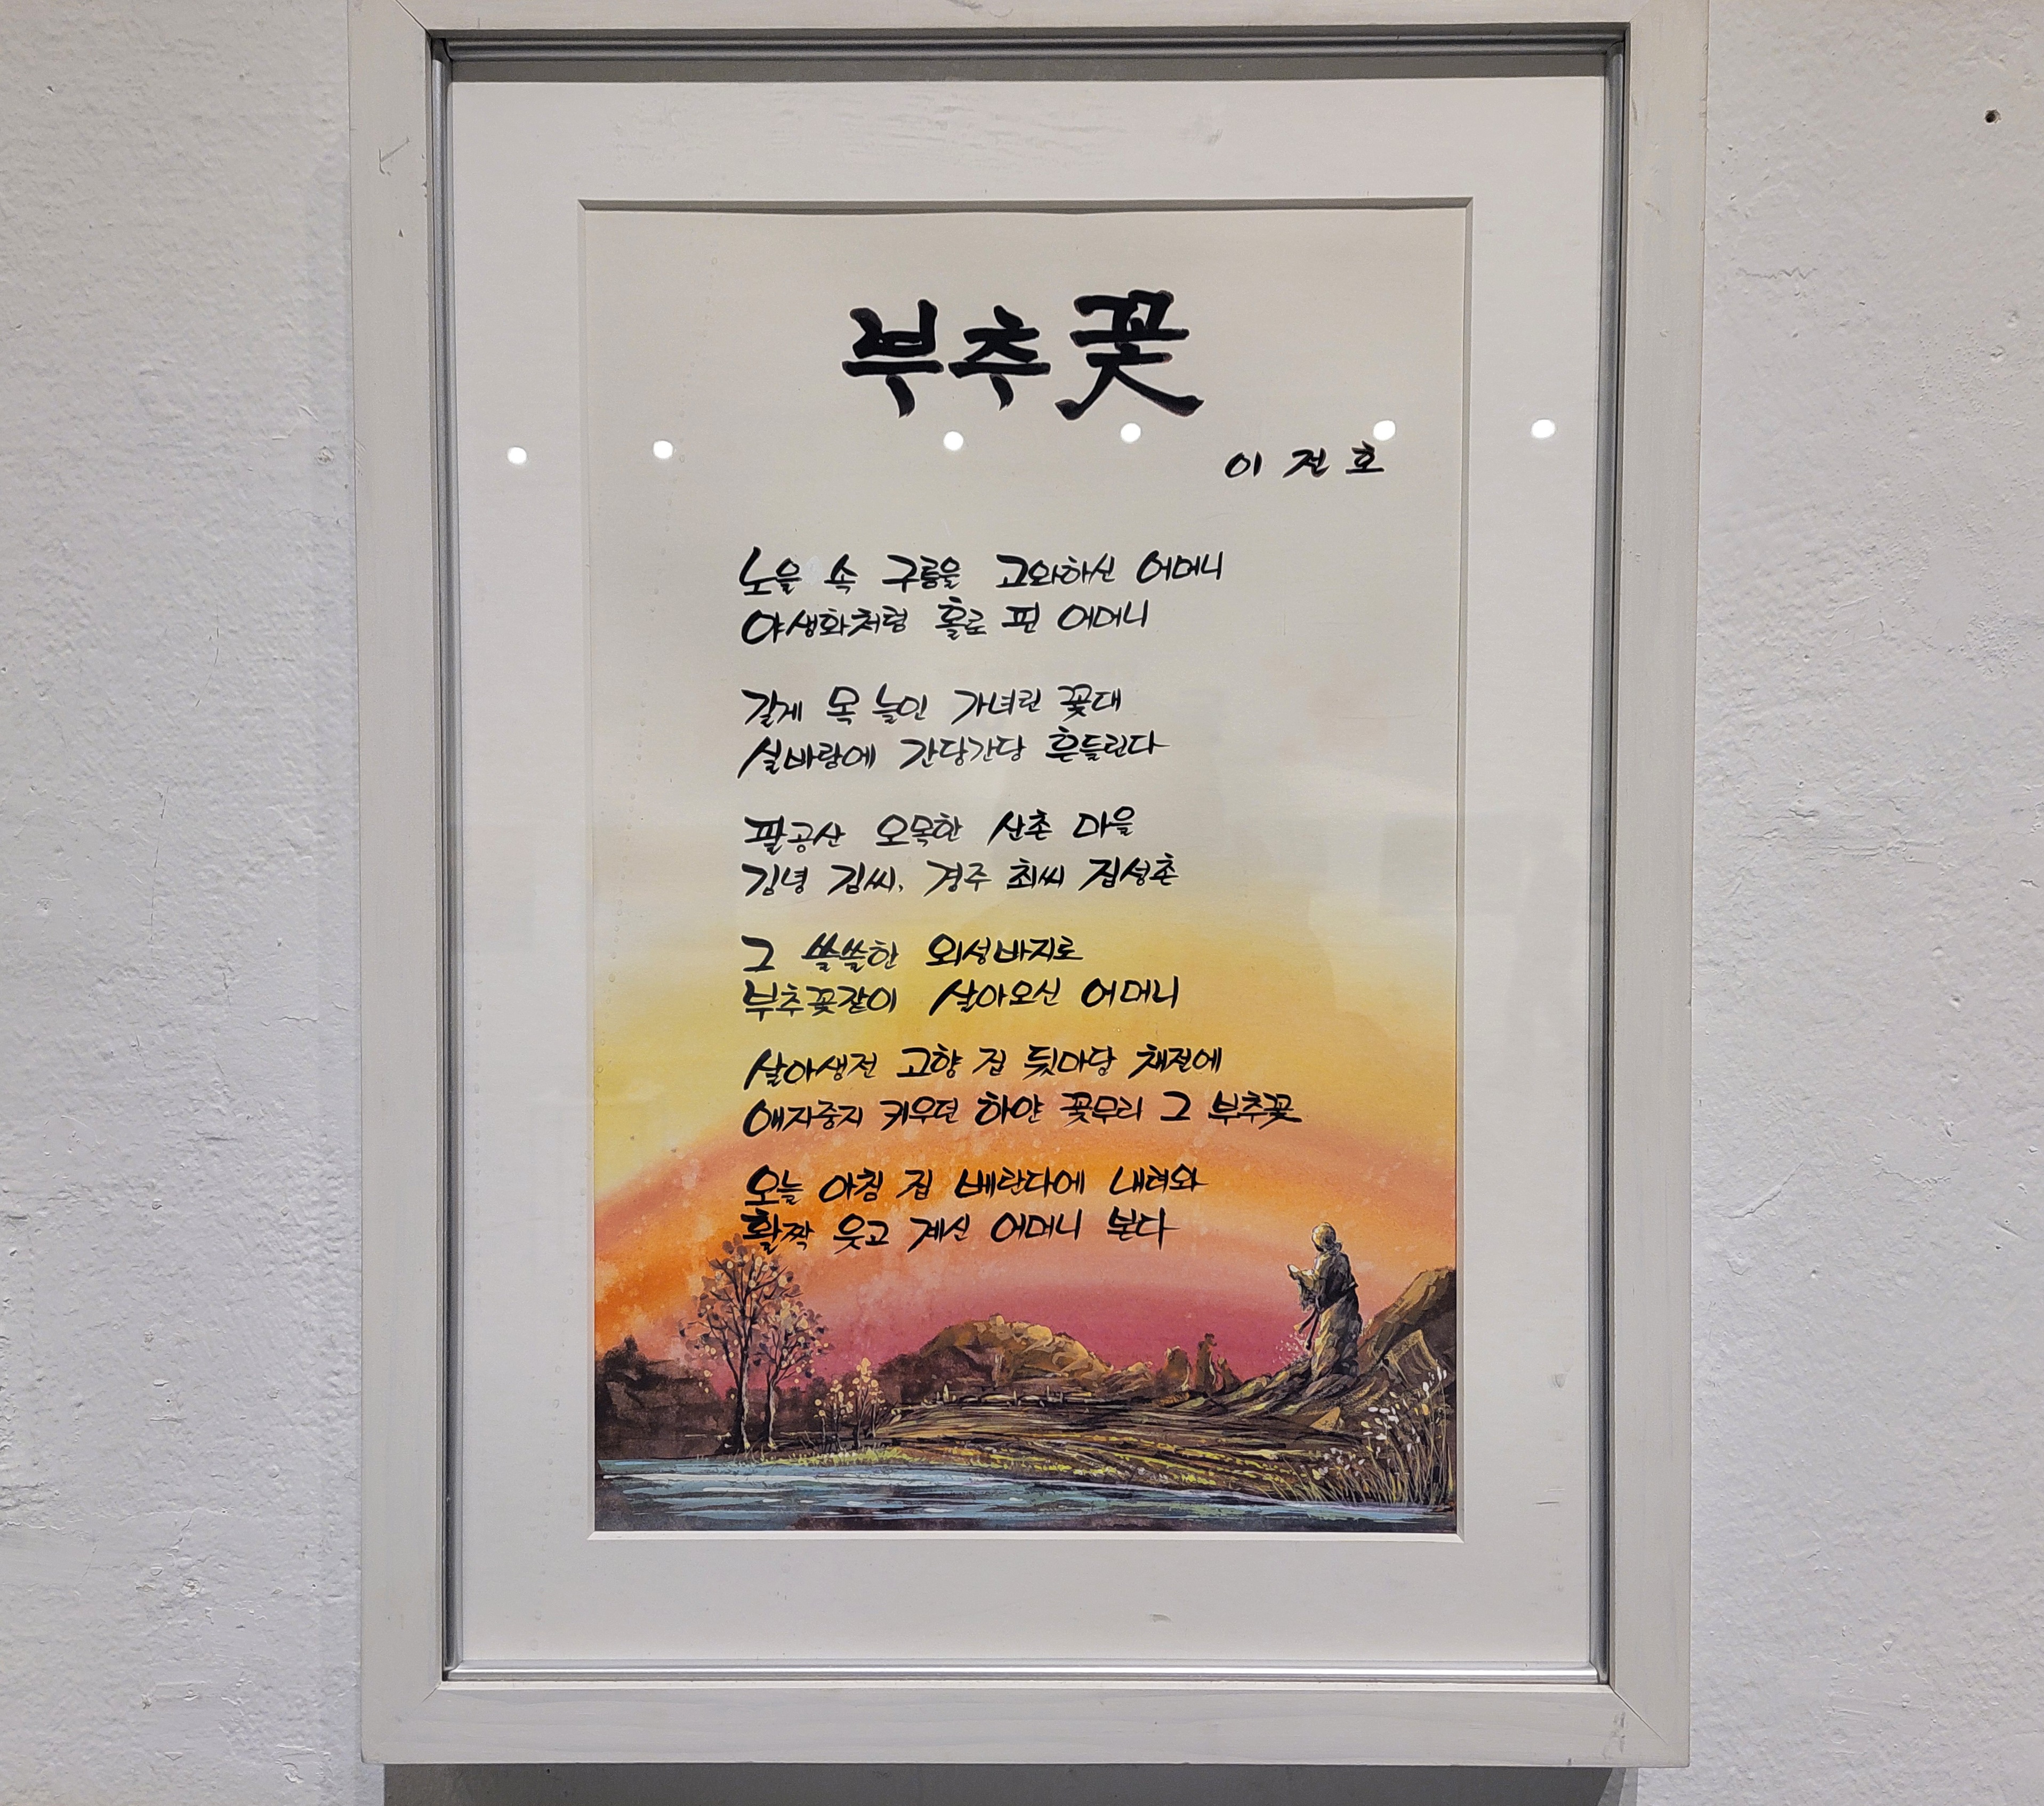 부추꽃
이 전 호
노을 속 구름을 고와하신 어머니
야생화처럼 홀로 핀 어머니
길게 목 늘인 가녀린 꽃대
실바람에 간당간당 흔들린다
팔공산 오목한 산촌 마을
김녕 김씨, 경주 최씨 집성촌
그 쓸쓸한 외성바지로
부추꽃같이 살아오신 어머니
살아생전 고향 집 뒷마당 채전에
애지중지 키우던 하얀 꽃무리 그 부추꽃
오늘 아침 집 베란다에 내려와
활짝 웃고 계신 어머니 본다